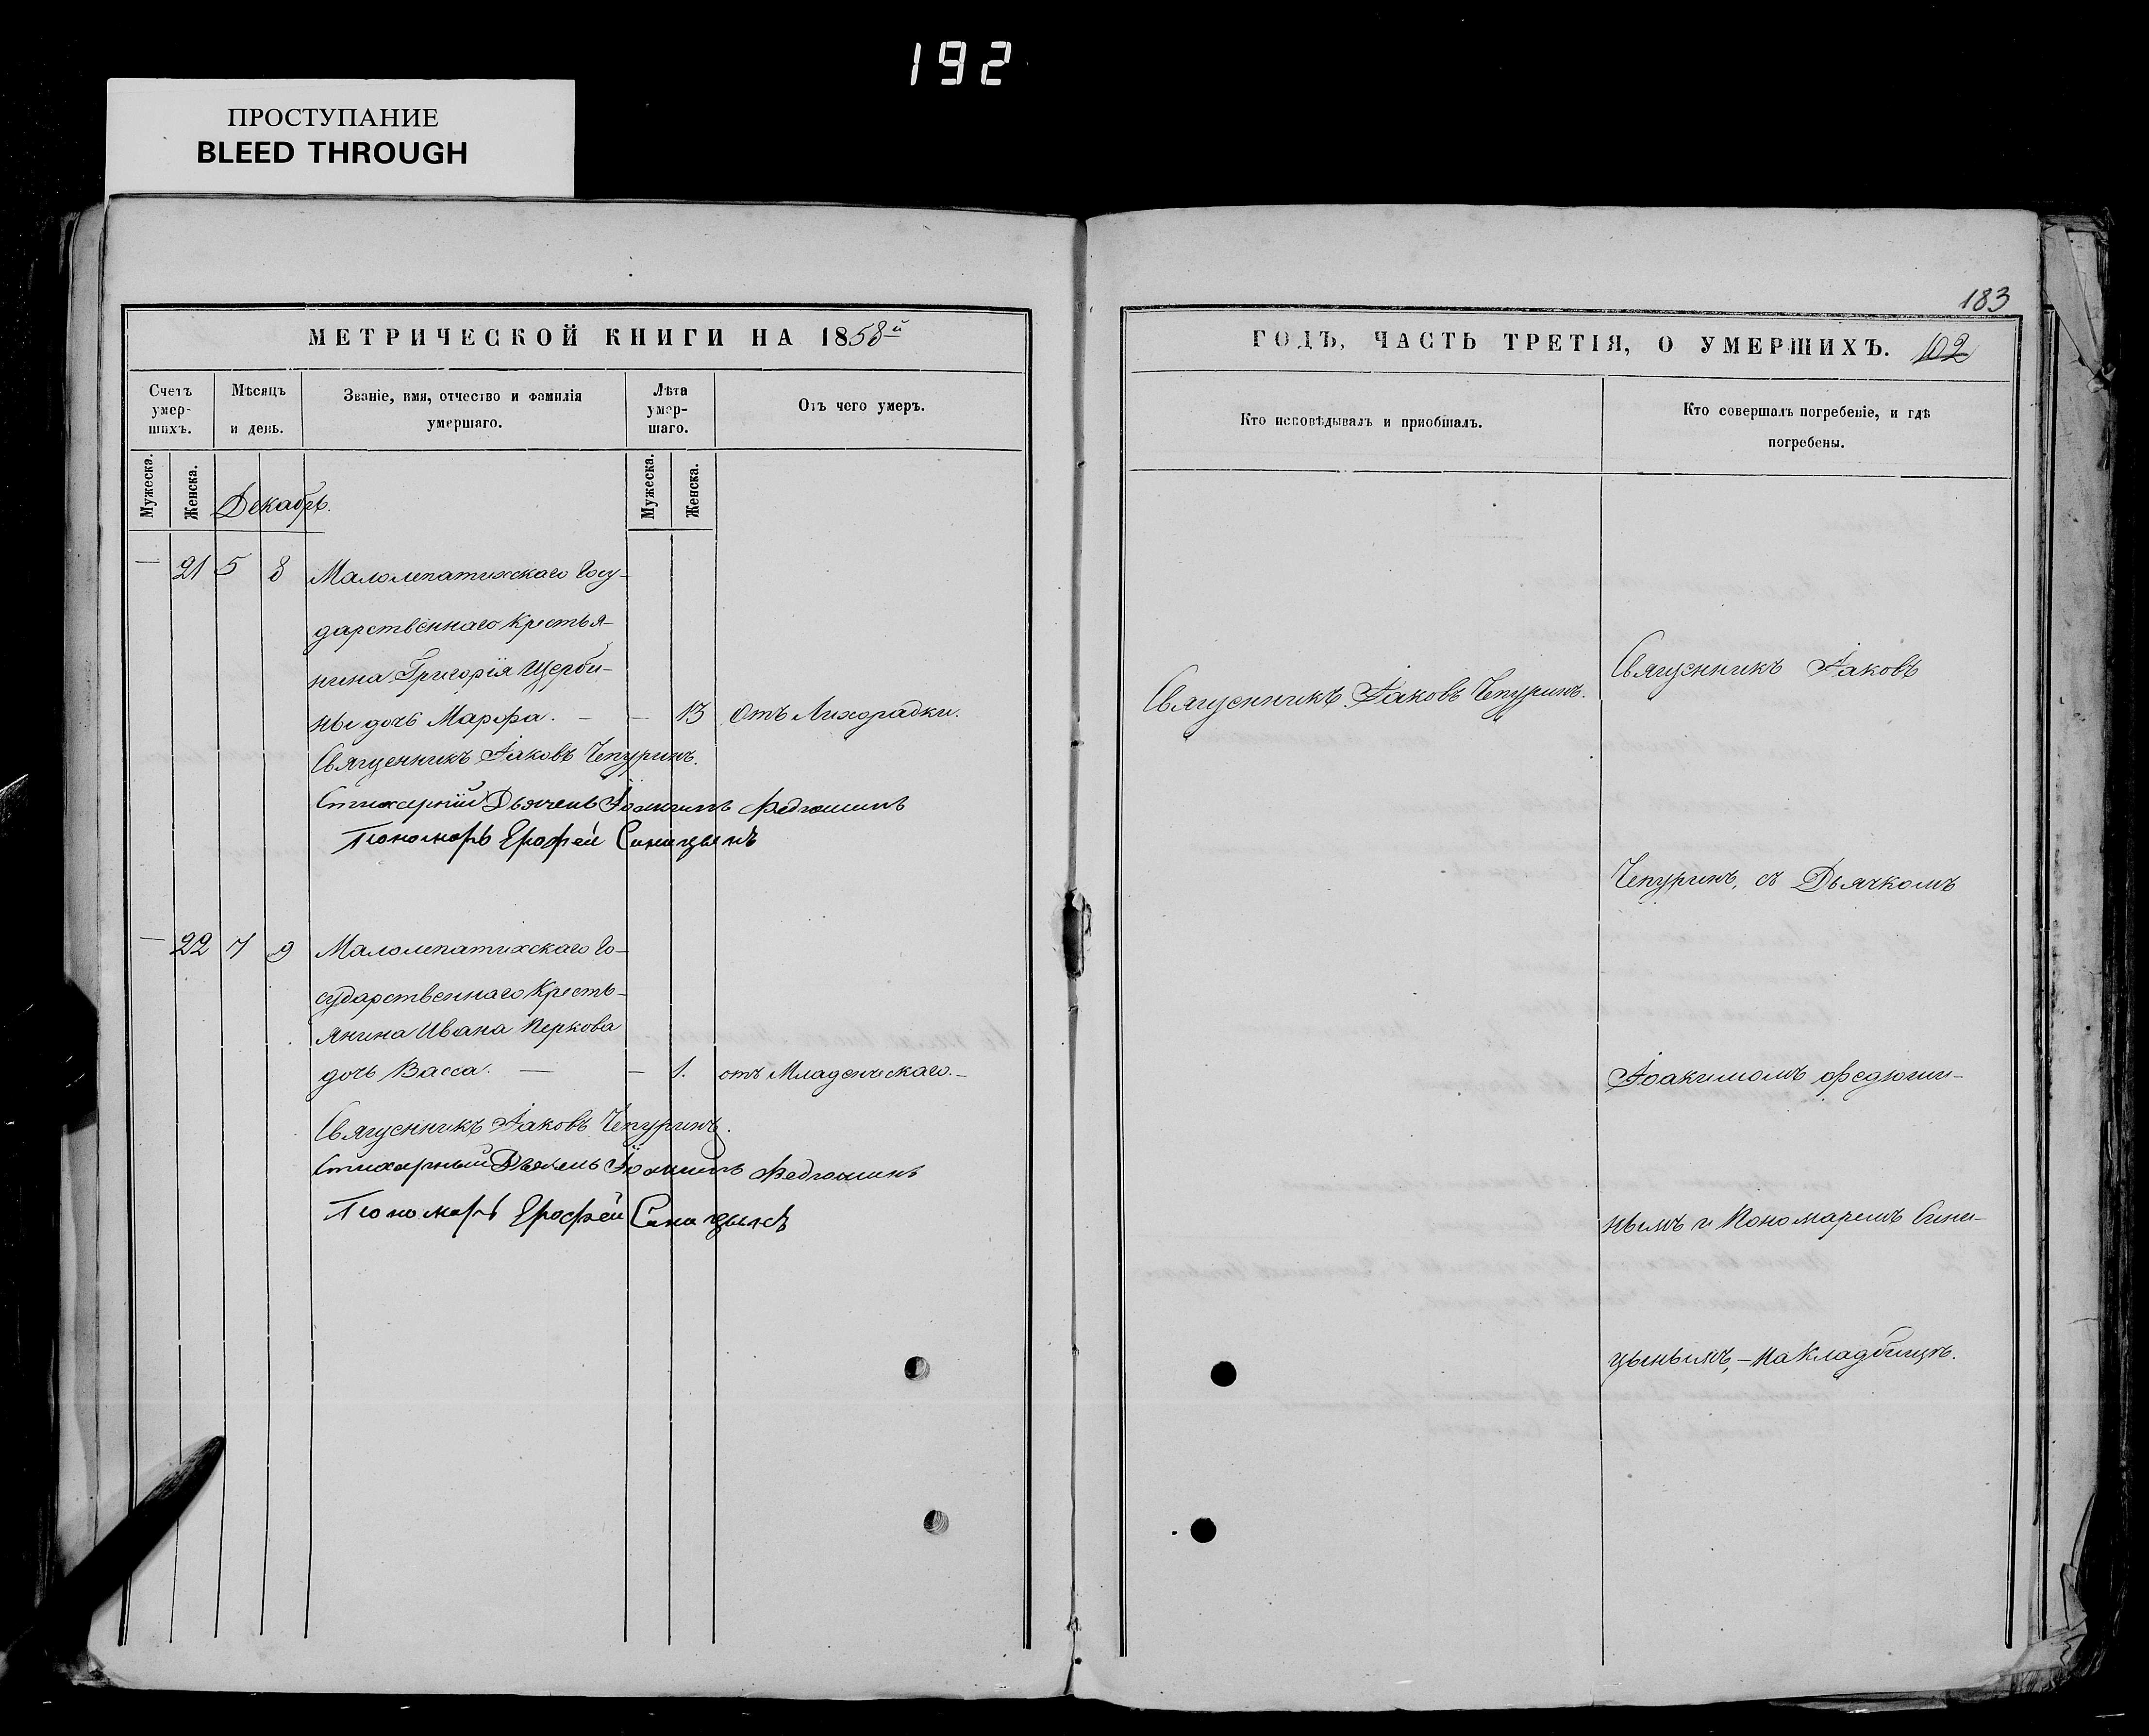 192
ПРОСТУПАНИЕ
BLEED THROUGH
183
МЕТРИЧЕСКОЙ КНИГИ НА 1858й
Счетъ умер-шихъ.
Мѣсяцъ и день.
Званіе, имя, отчество и фамилія умершаго.
Лѣта умер-шаго.
Отъ чего умеръ.
Мужеска.
Женска.
Декабрь.
Мужеска.
Женска.
— 21 5 8 Малолепатихскаго Госу-
дарственнаго крестья-
нина Григорія Щерби-
ны дочь Марфа. — — 13 Отъ Лихорадки.
Священникъ Іаковъ Чепуринъ.
Стихарный Дьячекъ Іоакимъ Федюшинъ
Пономарь Ерофей Синицынъ
— 22 7 9 Малолепатихскаго Го-
сударственнаго Кресть-
янина Ивана Перкова
дочь Васса. — — 1. отъ Младенческаго.—
Священникъ Іаковъ Чепуринъ.
Стихарный Дьячекъ Іоакимъ Федюшинъ
Пономарь Ерофей Синицынъ
ГОДЪ, ЧАСТЬ ТРЕТІЯ, О УМЕРШИХЪ. 102
Кто исповѣдывалъ и пріобщалъ.
Кто совершалъ погребеніе, и гдѣ
погребены.
Священникъ Іаковъ Чепуринъ.
Священникъ Іаковъ
Чепуринъ, съ Дьячкомъ
Іоакимомъ Федюши-
нымъ и Пономаремъ Сини-
цынымъ,—на Кладбищѣ.